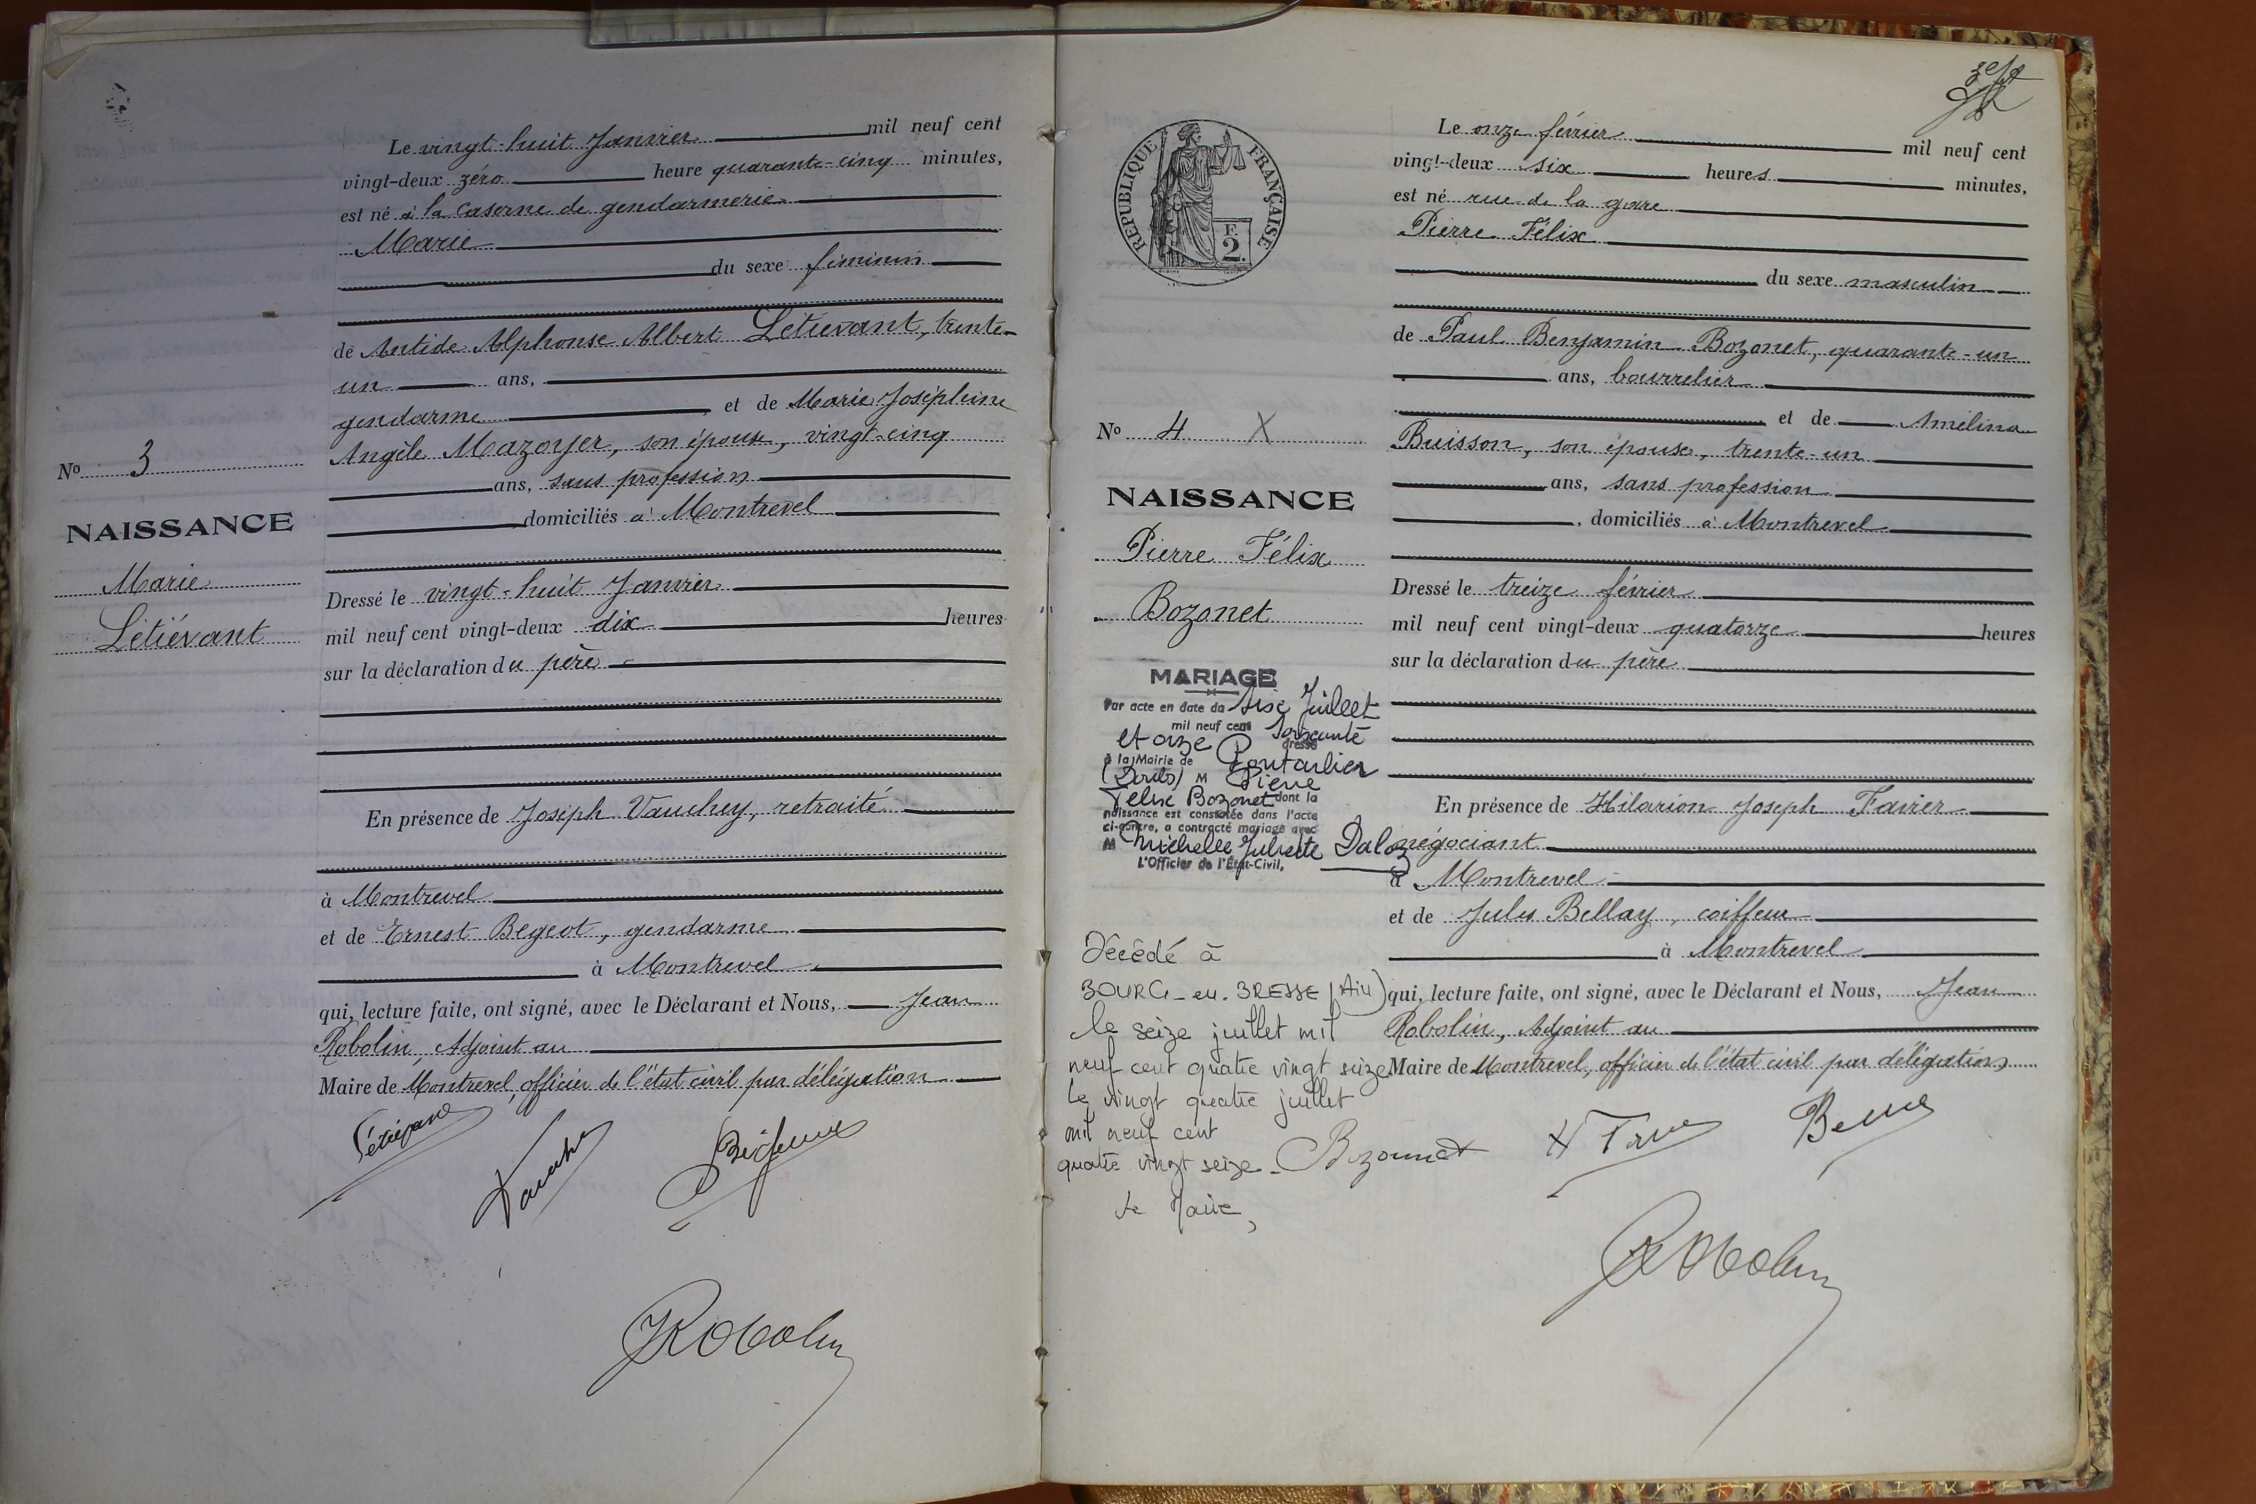 Le vingt-huit Janvier mil neuf cent
vingt-deux zéro heure quarante-cinq minutes,
est né à la caserne de gendarmerie
Marie
du sexe féminin
de Antide Alphonse Albert Létiévant, trente-
un ans,
gendarme et de Marie Joséphine
Angèle Mazoyer, son épouse, vingt-cinq
ans, sans profession
domiciliés à Montrevel
No 3
NAISSANCE
Marie
Létiévant
Dressé le vingt-huit Janvier
mil neuf cent vingt-deux dix heures
sur la déclaration du père
En présence de Joseph Vauchey, retraité
à Montrevel
et de Ernest Begeot, gendarme
à Montrevel
qui, lecture faite, ont signé, avec le Déclarant et Nous, Jean
Robolin, Adjoint au
Maire de Montrevel, officier de l'état civil par délégation
JRobolin
RÉPUBLIQUE FRANÇAISE
F.
2.
Le onze février mil neuf cent
vingt-deux six heures minutes,
est né rue de la gare
Pierre Félix
du sexe masculin
de Paul Benjamin Bozonet, quarante-un
ans, bourrelier
et de Amélina
Buisson, son épouse, trente-un
ans, sans profession
domiciliés à Montrevel
No 4 X
NAISSANCE
Pierre Félix
Bozonet
MARIAGE
Par acte en date du six Juillet
mil neuf cent soixante
et onze dressé
à la Mairie de Pontarlier
(Doubs) M Pierre
Felix Bozonet dont la
naissance est constatée dans l'acte
ci-contre, a contracté mariage avec
M Michelle Juliette Daloz
L'Officier de l'État-Civil,
Décédé à
BOURG-en-BRESSE (Ain)
le seize juillet mil
neuf cent quatre vingt seize
Le vingt quatre juillet
mil neuf cent
quatre vingt seize.
Le Maire,
Dressé le treize février
mil neuf cent vingt-deux quatorze heures
sur la déclaration du père
En présence de Hilarion Joseph Favier
négociant
à Montrevel
et de Jules Bellay, coiffeur
à Montrevel
qui, lecture faite, ont signé, avec le Déclarant et Nous, Jean
Robolin, Adjoint au
Maire de Montrevel, officier de l'état civil par délégation
Bozonnet
Robolin